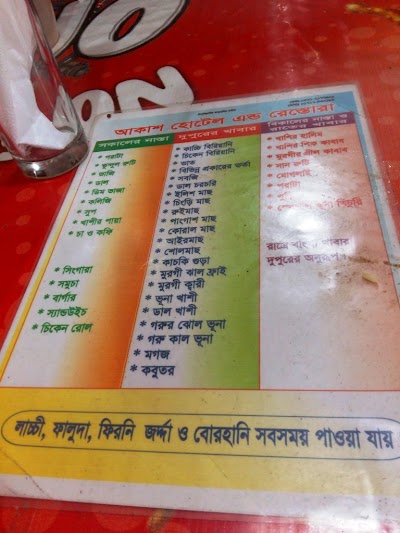 আকাশ হোটেল এন্ড রেস্তোরা
সকালের নাস্তা
* পরটা
* তুন্দুল রুটি
* ভাজি
* ডাল
* ডিম ভাজা
* কলিজি
* সুপ
* খাশীর পায়া
* চা ও কফি
* সিংগারা
* সমুচা
* বার্গার
* স্যান্ডউইচ
* চিকেন রোল
দুপুরের খাবার
* কাচ্চি বিরিয়ানি
* চিকেন বিরিয়ানি
* ভাত
* বিভিন্ন প্রকারের ভর্তা
* সবজি
* ডাল চরচরি
* ইলিশ মাছ
* চিংড়ি মাছ
* রুইমাছ
* পাংগাশ মাছ
* কোরাল মাছ
* আইরমাছ
* শোলমাছ
* কাচকি গুড়া
* মুরগী ঝাল ফ্রাই
* মুরগী ক্বারী
* ভূনা খাশী
* ডাল খাশী
* গরুর ঝোল ভূনা
* গরু কাল ভূনা
* মগজ
* কবুতর
বিকালের নাস্তা ও
রাতের খাবার
* খাশির হালিম
* খাশির শিক কাবাব
* মুরগীর গ্রীল কাবাব
* নান রুটি
* মোঘলাই
* পরটা
খিচুরি
রাতে বাংলা খাবার
দুপুরের অনুরূপ
লাচ্চী, ফালুদা, ফিরনি জর্দ্দা ও বোরহানি সবসময় পাওয়া যায়